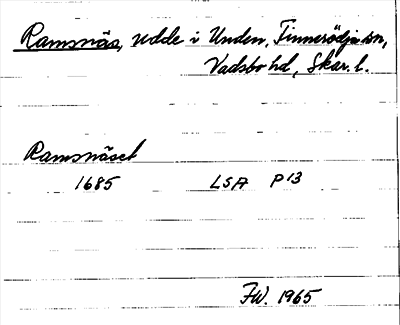 Ramsnäs, udde i Unden, Tinnerödja sn,
Vadsbo hd, Skar. l.
Ramsnäset
1685 LSA P13
FW. 1965